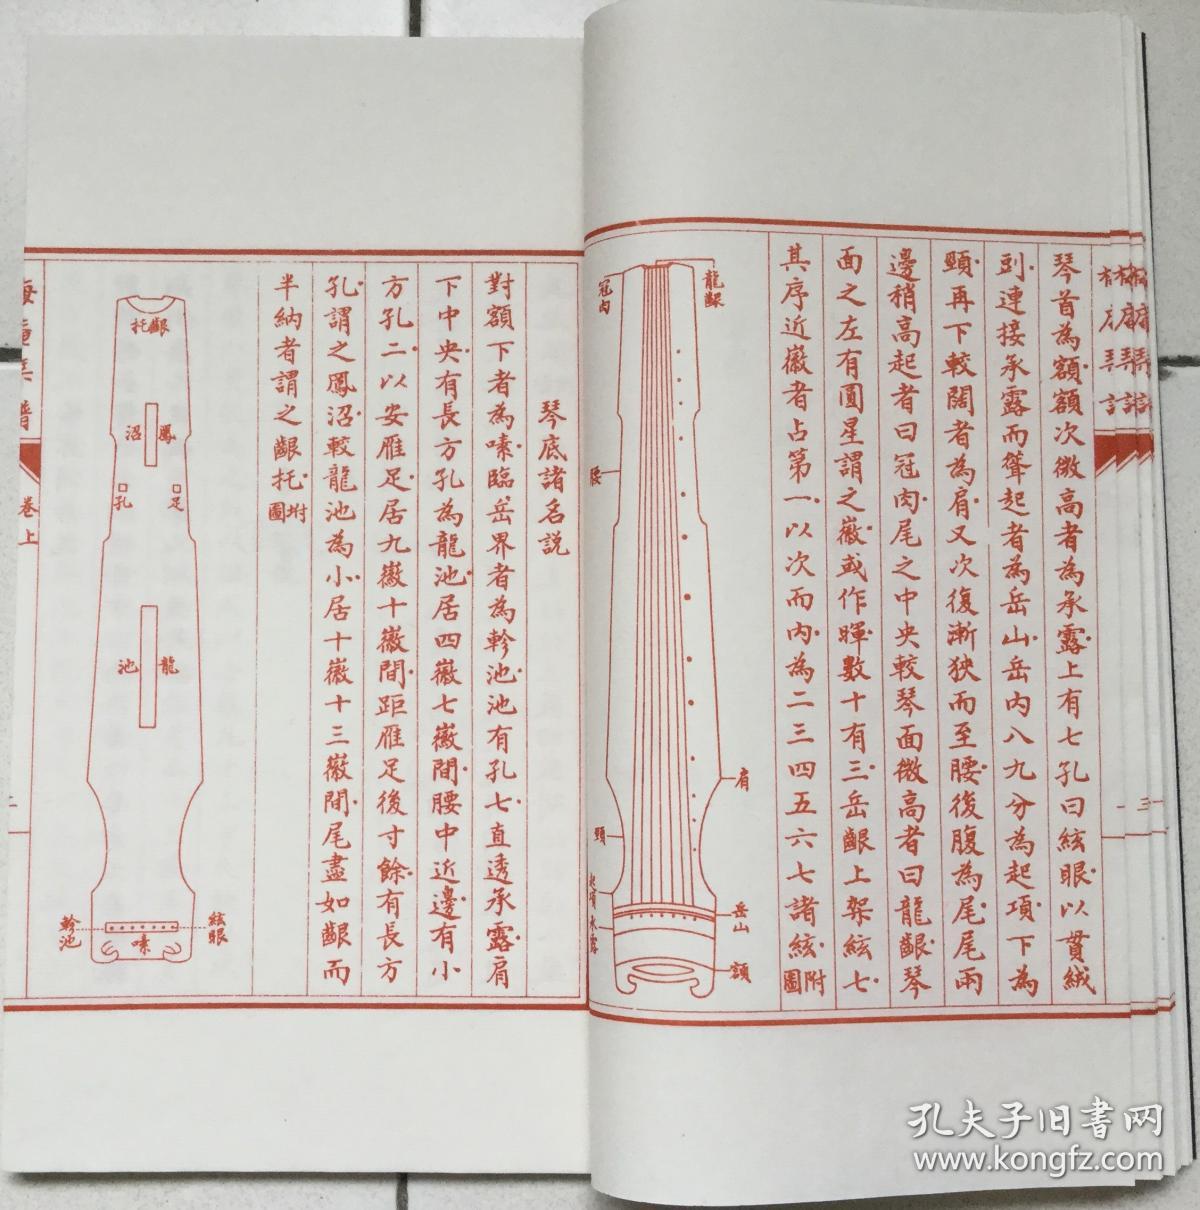 琴首為額額次微高者為承露上有七孔曰絃眼以貫絨
剅連接承露而聳起者為岳山岳内八九分為起項下為
頸再下較闊者為肩又次復漸狹而至腰後腹為尾尾兩
邊稍高起者曰冠肉尾之中央較琴面微高者曰龍齦琴
面之左有圓星謂之徽或作暉數十有三岳齦上架絃七
其序近徽者占第一以次而内為二三四五六七諸絃附圖
龍齦
冠肉
腰
肩
頸
起項
承露
岳山
額
三
琴底諸名説
對額下者為嗉臨岳界者為軫池池有孔七直透承露肩
下中央有長方孔為龍池居四徽七徽間腰中近邊有小
方孔二以安雁足居九徽十徽間距雁足後寸餘有長方
孔謂之鳳沼較龍池為小居十徽十三徽間尾盡如齦而
半納者謂之齦托坿圖
齦托
鳳沼
足孔
龍池
絃眼
軫池
嗉
梅庵琴譜
卷上
孔夫子旧书网
www.kongfz.com